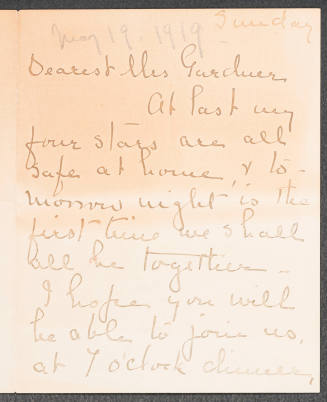 Sunday
May 19. 1919
Dearest Mrs Gardner
At last my
four stars are all
safe at home, & to-
morrow night is the
first time we shall
all be together -
I hope you will
be able to join us,
at 7 o'clock dinner,